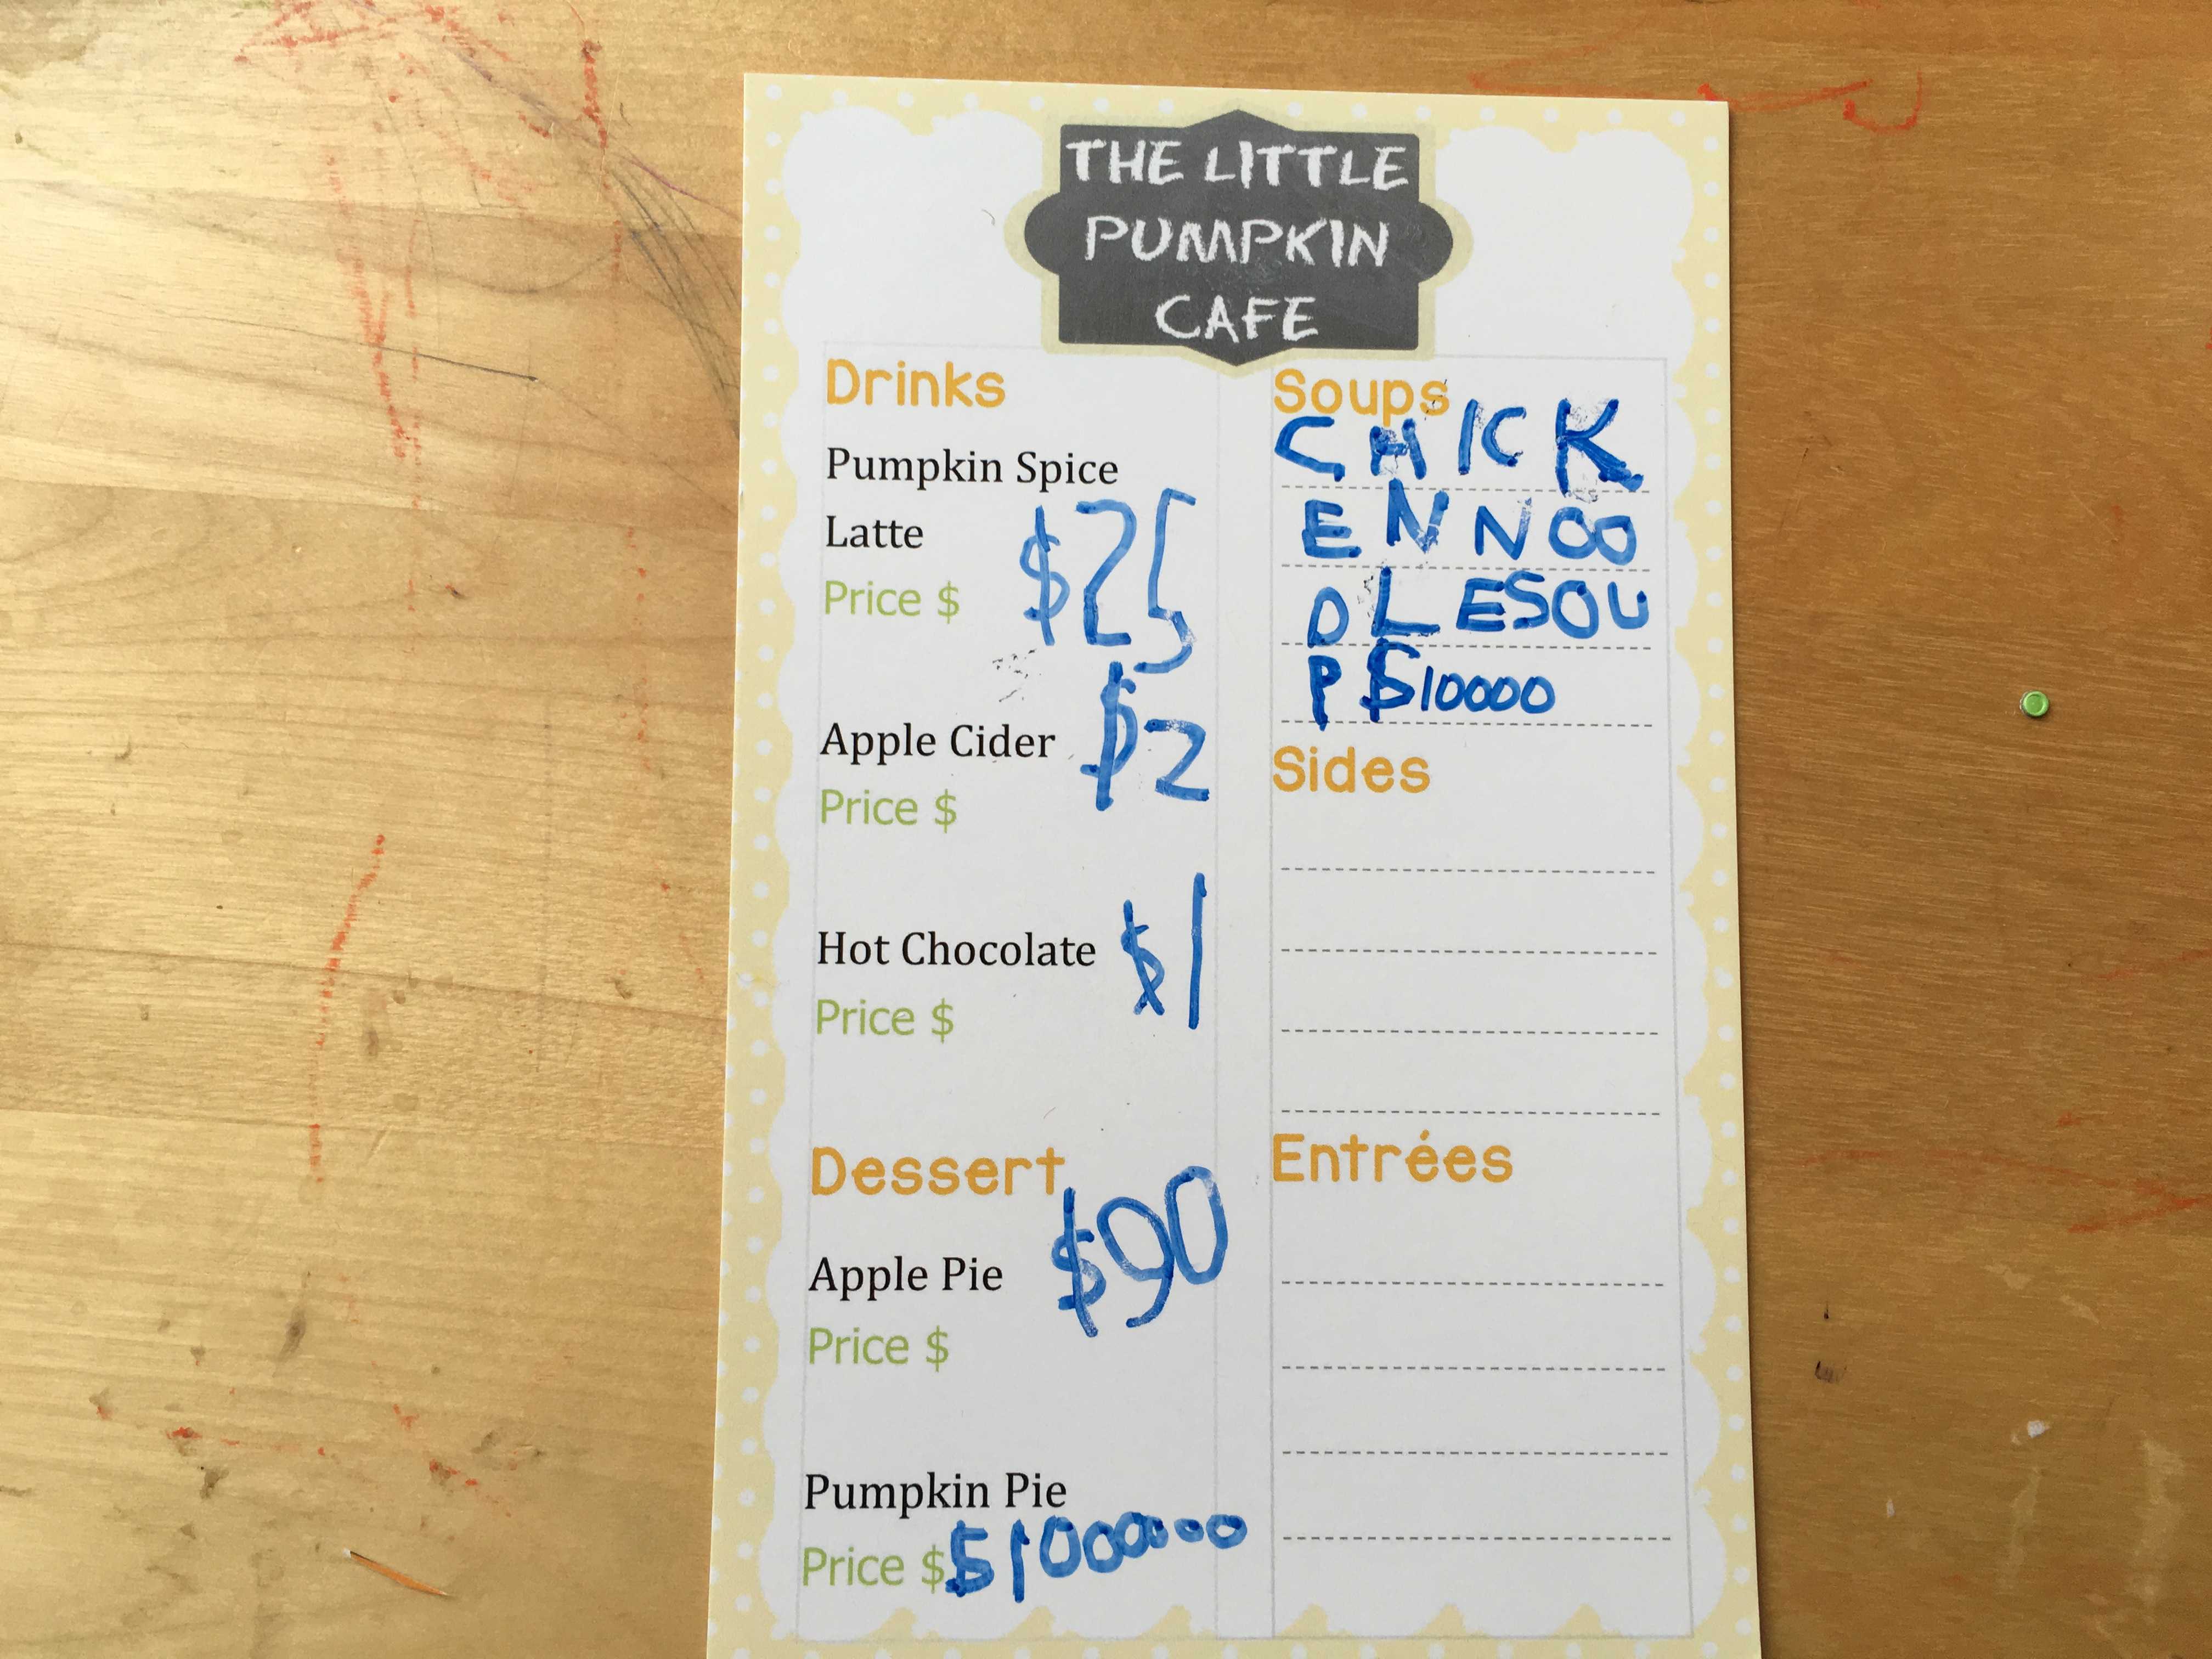 THE LITTLE
PUMPKIN
CAFE
Drinks
Pumpkin Spice
Latte
Price $ $25
Apple Cider $2
Price $
Hot Chocolate $1
Price $
Dessert
Apple Pie $90
Price $
Pumpkin Pie
Price $ $1000000
Soups
CHICK
EN NOO
DLESOU
P $10000
Sides
Entrées